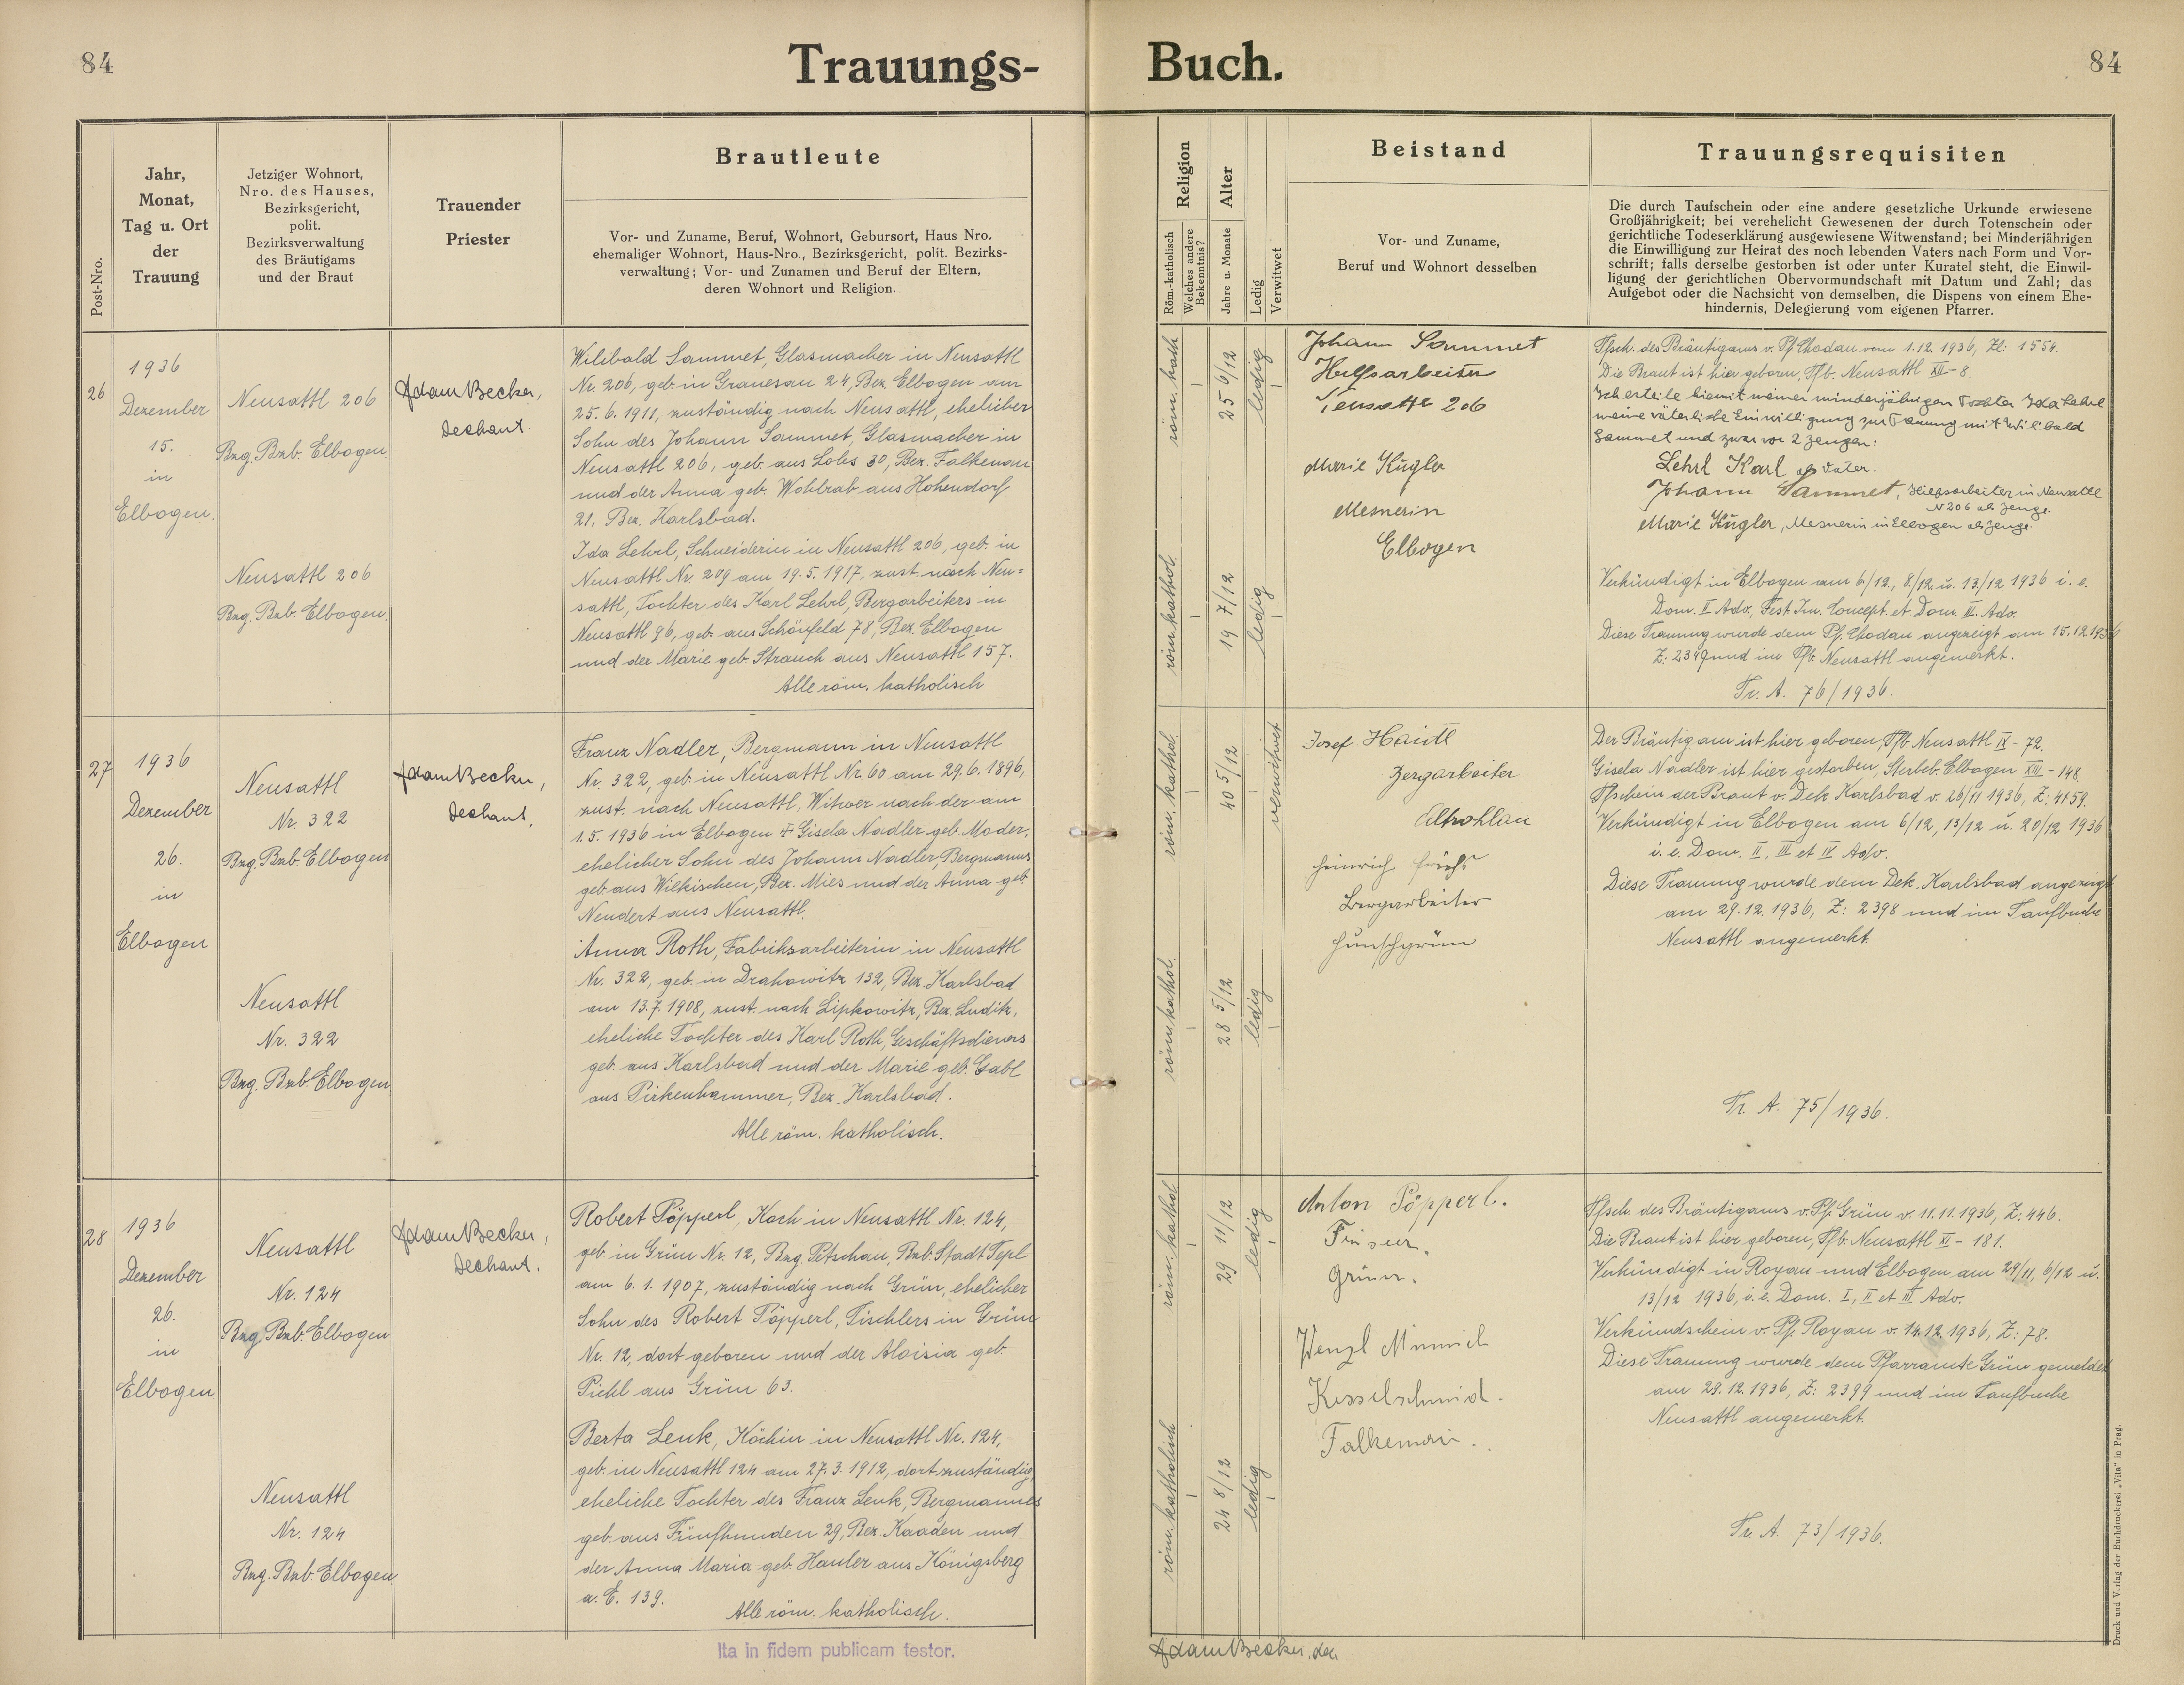 84
Trauungs-
Buch.
84
Post-Nro.
Jahr,
Monat,
Tag u. Ort
der
Trauung
Jetziger Wohnort,
Nro. des Hauses,
Bezirksgericht,
polit.
Bezirksverwaltung
des Bräutigams
und der Braut
Trauender
Priester
Brautleute
Vor- und Zuname, Beruf, Wohnort, Gebursort, Haus Nro.
ehemaliger Wohnort, Haus-Nro., Bezirksgericht, polit. Bezirks-
verwaltung; Vor- und Zunamen und Beruf der Eltern,
deren Wohnort und Religion.
Religion
Röm.-katholisch
Welches andere
Bekenntnis?
Alter
Jahre u. Monate
Ledig
Verwitwet
Beistand
Vor- und Zuname,
Beruf und Wohnort desselben
Trauungsrequisiten
Die durch Taufschein oder eine andere gesetzliche Urkunde erwiesene
Großjährigkeit; bei verehelicht Gewesenen der durch Totenschein oder
gerichtliche Todeserklärung ausgewiesene Witwenstand; bei Minderjährigen
die Einwilligung zur Heirat des noch lebenden Vaters nach Form und Vor-
schrift; falls derselbe gestorben ist oder unter Kuratel steht, die Einwil-
ligung der gerichtlichen Obervormundschaft mit Datum und Zahl; das
Aufgebot oder die Nachsicht von demselben, die Dispens von einem Ehe-
hindernis, Delegierung vom eigenen Pfarrer.
26
1936
Dezember
15.
in
Elbogen.
Neusattl 206
Bzg. Bzb. Elbogen.
Neusattl 206
Bzg. Bzb. Elbogen.
Adam Becker,
Dechant.
Wilibald Sammet, Glasmacher in Neusattl
Nr. 206, geb. in Granesau 24, Bez. Elbogen am
25. 6. 1911, zuständig nach Neusattl, ehelicher
Sohn des Johann Sammet, Glasmacher in
Neusattl 206, geb. aus Lobs 30, Bez. Falkenau
und der Anna geb. Wohlrab aus Hohendorf
21, Bez. Karlsbad.
Ida Lehrl, Schneiderin in Neusattl 206, geb. in
Neusattl Nr. 209 am 19. 5. 1917, zust. nach Neu=
sattl, Tochter des Karl Lehrl, Bergarbeiters in
Neusattl 96, geb. aus Schönfeld 78, Bez. Elbogen
und der Marie geb. Strauch aus Neusattl 157.
Alle röm. katholisch
röm. kath.
25 6/12
ledig
röm. kathol.
19 7/12
ledig
Johann Sammet
Hilfsarbeiter
Neusattl 206
Marie Kügler
Mesnerin
Elbogen
Tfsch. des Bräutigams v. Pf. Chodau vom 1. 12. 1936, Zl: 1554.
Die Braut ist hier geboren, Tfb. Neusattl XII - 8.
Ich erteile hiemit meiner minderjährigen Tochter Ida Lehrl
meine väterliche Einwilligung zur Trauung mit Wilibald
Sammet und zwar vor 2 Zeugen:
Lehrl Karl als Vater.
Johann Sammet, Hilfsarbeiter in Neusattl
N 206 als Zeuge.
Marie Kügler, Mesnerin in Elbogen als Zeuge.
Verkündigt in Elbogen am 6/12., 8/12 u. 13/12 1936 i. e.
Dom. II Adv., Fest Im. Concept. et Dom. III. Adv.
Diese Trauung wurde dem Pf. Chodau angezeigt am 15. 12. 1936
Z: 2349 und im Tfb. Neusattl angemerkt.
Tr. A. 76/1936.
27
1936
Dezember
26.
in
Elbogen
Neusattl
Nr. 322
Bzg. Bzb. Elbogen
Neusattl
Nr. 322
Bzg. Bzb Elbogen
Adam Becker,
Dechant,
Franz Nadler, Bergmann in Neusattl
Nr. 322, geb. in Neusattl Nr. 60 am 29. 6. 1896,
zust. nach Neusattl, Witwer nach der am
1. 5. 1936 in Elbogen † Gisela Nadler geb. Moder,
ehelicher Sohn des Johann Nadler, Bergmanns
geb. aus Wilkischen, Bez. Mies und der Anna geb.
Neudert aus Neusattl.
Anna Roth, Fabriksarbeiterin in Neusattl
Nr. 322, geb. in Drahowitz 132, Bez. Karlsbad
am 13. 7. 1908, zust. nach Lipkowitz, Bez. Luditz,
eheliche Tochter des Karl Roth, Geschäftsdieners
geb. aus Karlsbad und der Marie geb. Gabl
aus Pirkenhammer, Bez. Karlsbad.
Alle röm. katholisch.
röm. kathol.
40 5/12
verwitwet
röm. kathol.
28 5/12
ledig
Josef
Bergarbeiter
Altrohlau
Heinrich
Bergarbeiter
Hunschgrün
Der Bräutigam ist hier geboren, Tfb. Neusattl IX - 72.
Gisela Nadler ist hier gestorben, Sterbeb. Elbogen XIII - 148.
Tfschein der Braut v. Dek. Karlsbad v. 26/11 1936, Z: 4159.
Verkündigt in Elbogen am 6/12, 13/12 u. 20/12 1936
i. e. Dom. II, III et IV Adv.
Diese Trauung wurde dem Dek. Karlsbad angezeigt
am 29. 12. 1936, Z: 2398 und im Taufbuche
Neusattl angemerkt.
Tr. A. 75/1936.
28
1936
Dezember
26.
in
Elbogen.
Neusattl
Nr. 124
Bzg Bzb. Elbogen
Neusattl
Nr. 124
Bzg. Bzb Elbogen
Adam Becker,
Dechant.
Robert Pöpperl, Koch in Neusattl Nr. 124,
geb. in Grün Nr. 12, Bzg Petschau, Bzb. Stadt Tepl
am 6. 1. 1907, zuständig nach Grün, ehelicher
Sohn des Robert Pöpperl, Tischlers in Grün
Nr. 12, dort geboren und der Aloisia geb.
Pichl aus Grün 63.
Berta Lenk, Köchin in Neusattl Nr. 124,
geb. in Neusattl 124 am 27. 3. 1912, dort zuständig,
eheliche Tochter des Franz Lenk, Bergmannes
geb. aus Fünfhunden 29, Bez. Kaaden und
der Anna Maria geb. Hauler aus Königsberg
a. E. 139.
Alle röm. katholisch.
röm. kathol
29 11/12
ledig
röm. katholisch
24 8/12
ledig
Anton Pöpperl.
Friseur.
Grün.
Wenzl
Kesselschmid.
Falkenau.
Tfsch. des Bräutigams v. Pf. Grün v. 11. 11. 1936, Z: 446.
Die Braut ist hier geboren, Tfb. Neusattl XI - 181.
Verkündigt in Royau und Elbogen am 29/11, 6/12 u.
13/12 1936, i. e. Dom. I, II et III Adv.
Verkündschein v. Pf. Royau v. 14. 12. 1936, Z: 78.
Diese Trauung wurde dem Pfarramte Grün gemeldet
am 29. 12. 1936, Z: 2399 und im Taufbuche
Neusattl angemerkt.
Tr. A. 73/1936.
Ita in fidem publicam testor.
Adam Becker, Dech.
Druck und Verlag der Buchdruckerei „Vita“ in Prag.